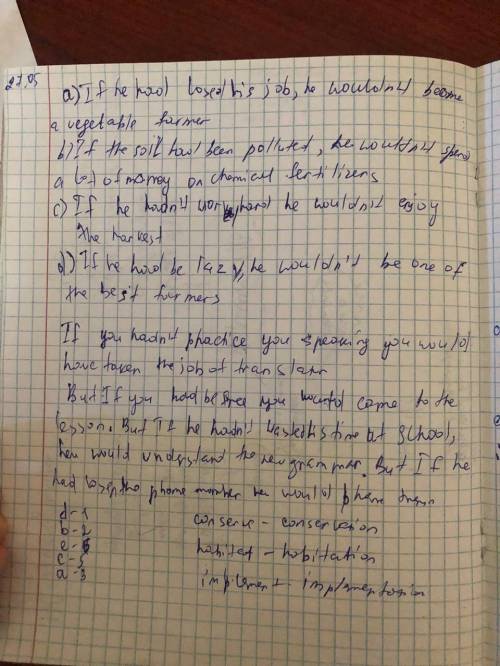 27.05
a) If he had losed his job, he wouldn't become
a vegetable farmer
b) If the soil had been polluted, he wouldn't spend
a lot of money on chemical fertilizers
c) If he hadn't work hard he wouldn't enjoy
the harvest
d) If he had be lazy, he wouldn't be one of
the best farmers
If you hadn't practice you speaking you would
have taken the job of
But If you had be free you would came to the
lesson. But If he hadn't wasted his time at school,
he would understand the new grammar. But If he
had the phone number he would phone
d-1
b-2
e-6
c-5
a-3
conserve - conservation
habitat - habitation
implement - implementation